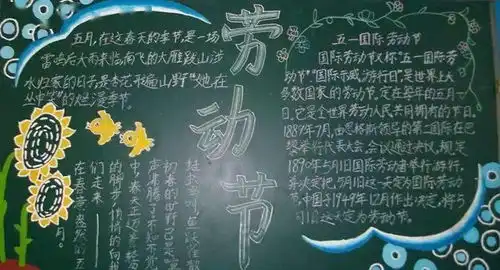 五月,在这春天的季节,是一场
雷鸣
南飞的大雁跋山涉
水归家的日
山野"她在
丛中笑"的烂漫季节。
劳动节
五一国际劳动节
国际劳动节又称"五一国际劳
动节""国际示威游行日"是世界上大
多数国家的劳动节。定在每年的五月一
日。它是全世界劳动人民共同拥有的节日。
1889年7月,由恩格斯领导的第二国际在巴
黎举行代表大会。会议通过决议,规定
1890年5月1日国际劳动者举行游行,
并决定把5月1日这一天定为国际劳动
节。中国于1949年12月作出决定,将5
月1日这一天定为劳动节。
初春的世界已是
声沸腾了不知
中,春天正迈着轻
的脚步,悄悄的向我
们走来
在春意盎然的五
月。